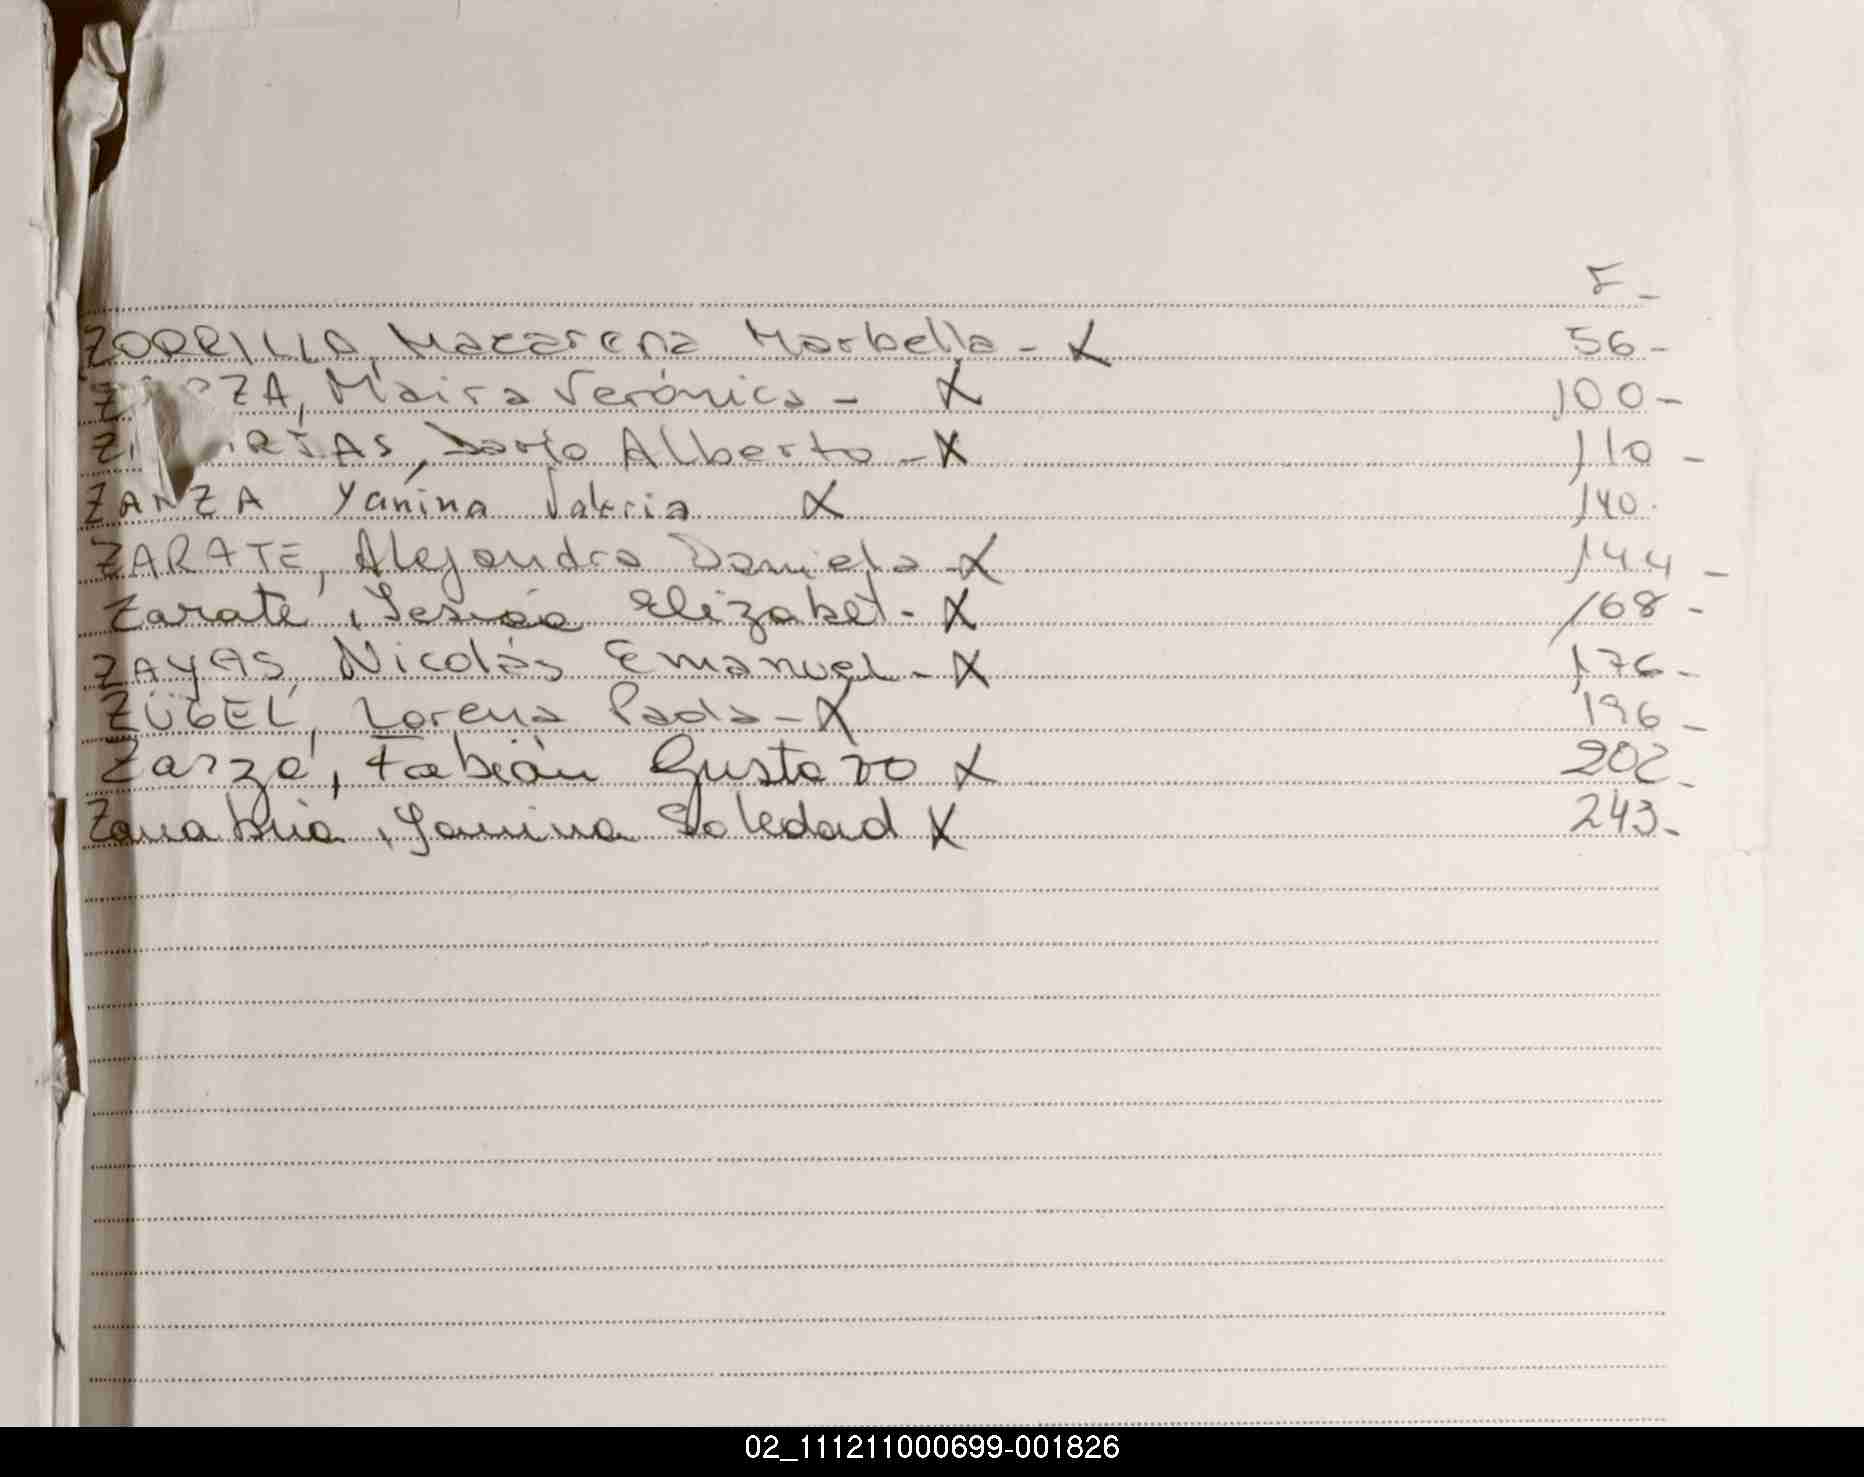 F-
ZORRILLA, Macarena Marbella - X 56-
ZA ZA, Maira Verónica - X 100-
Z RÍAS, Darío Alberto - X 110-
ZANZA Yanina Valeria X 140.
ZARATE, Alejandra Daniela - X 144-
Zarate, Elizabet - X 168-
ZAYAS, Nicolás Emanuel - X 176-
ZÜGEL, Lorena Paola - X 196-
Zarza, Fabián Gustavo X 202-
Zanabria, Yanina Soledad X 243-
02_111211000699-001826